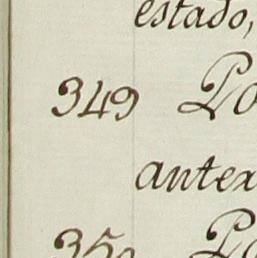 estado,
349 Po
antex
350 Po